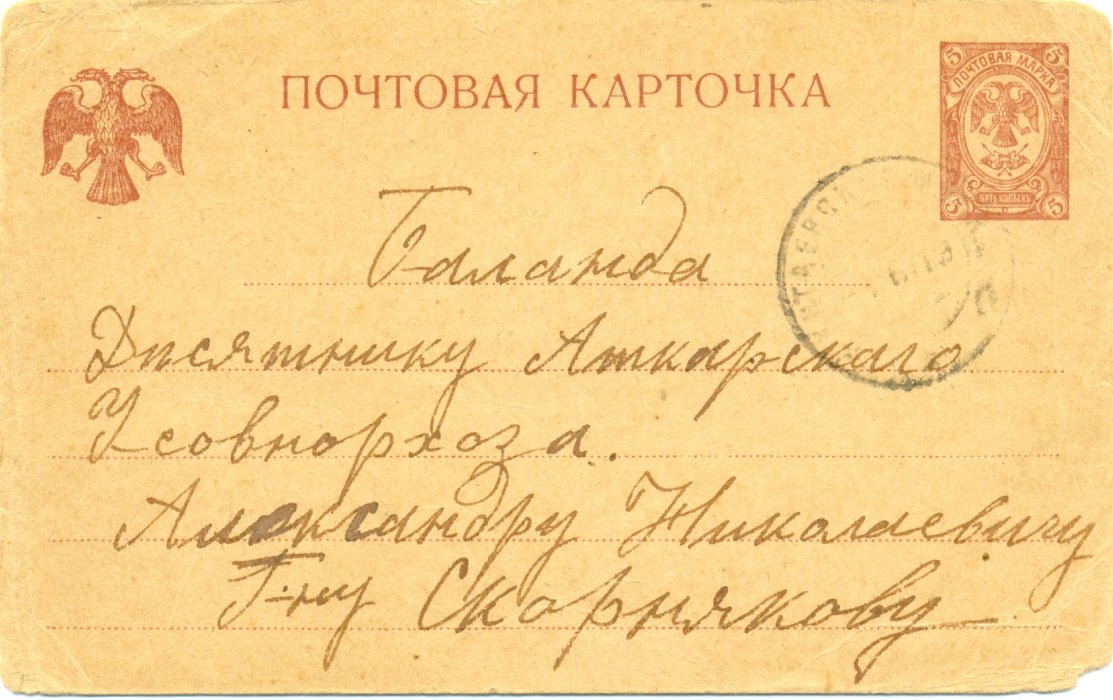 ПОЧТОВАЯ КАРТОЧКА
5 5
ПОЧТОВАЯ МАРКА
ПЯТЬ КОПѢЕКЪ
5 5
Баланда
Дисятнику Аткарскаго
Усовнорхоза.
Александру Николаевичу
Г-ну Скорнякову